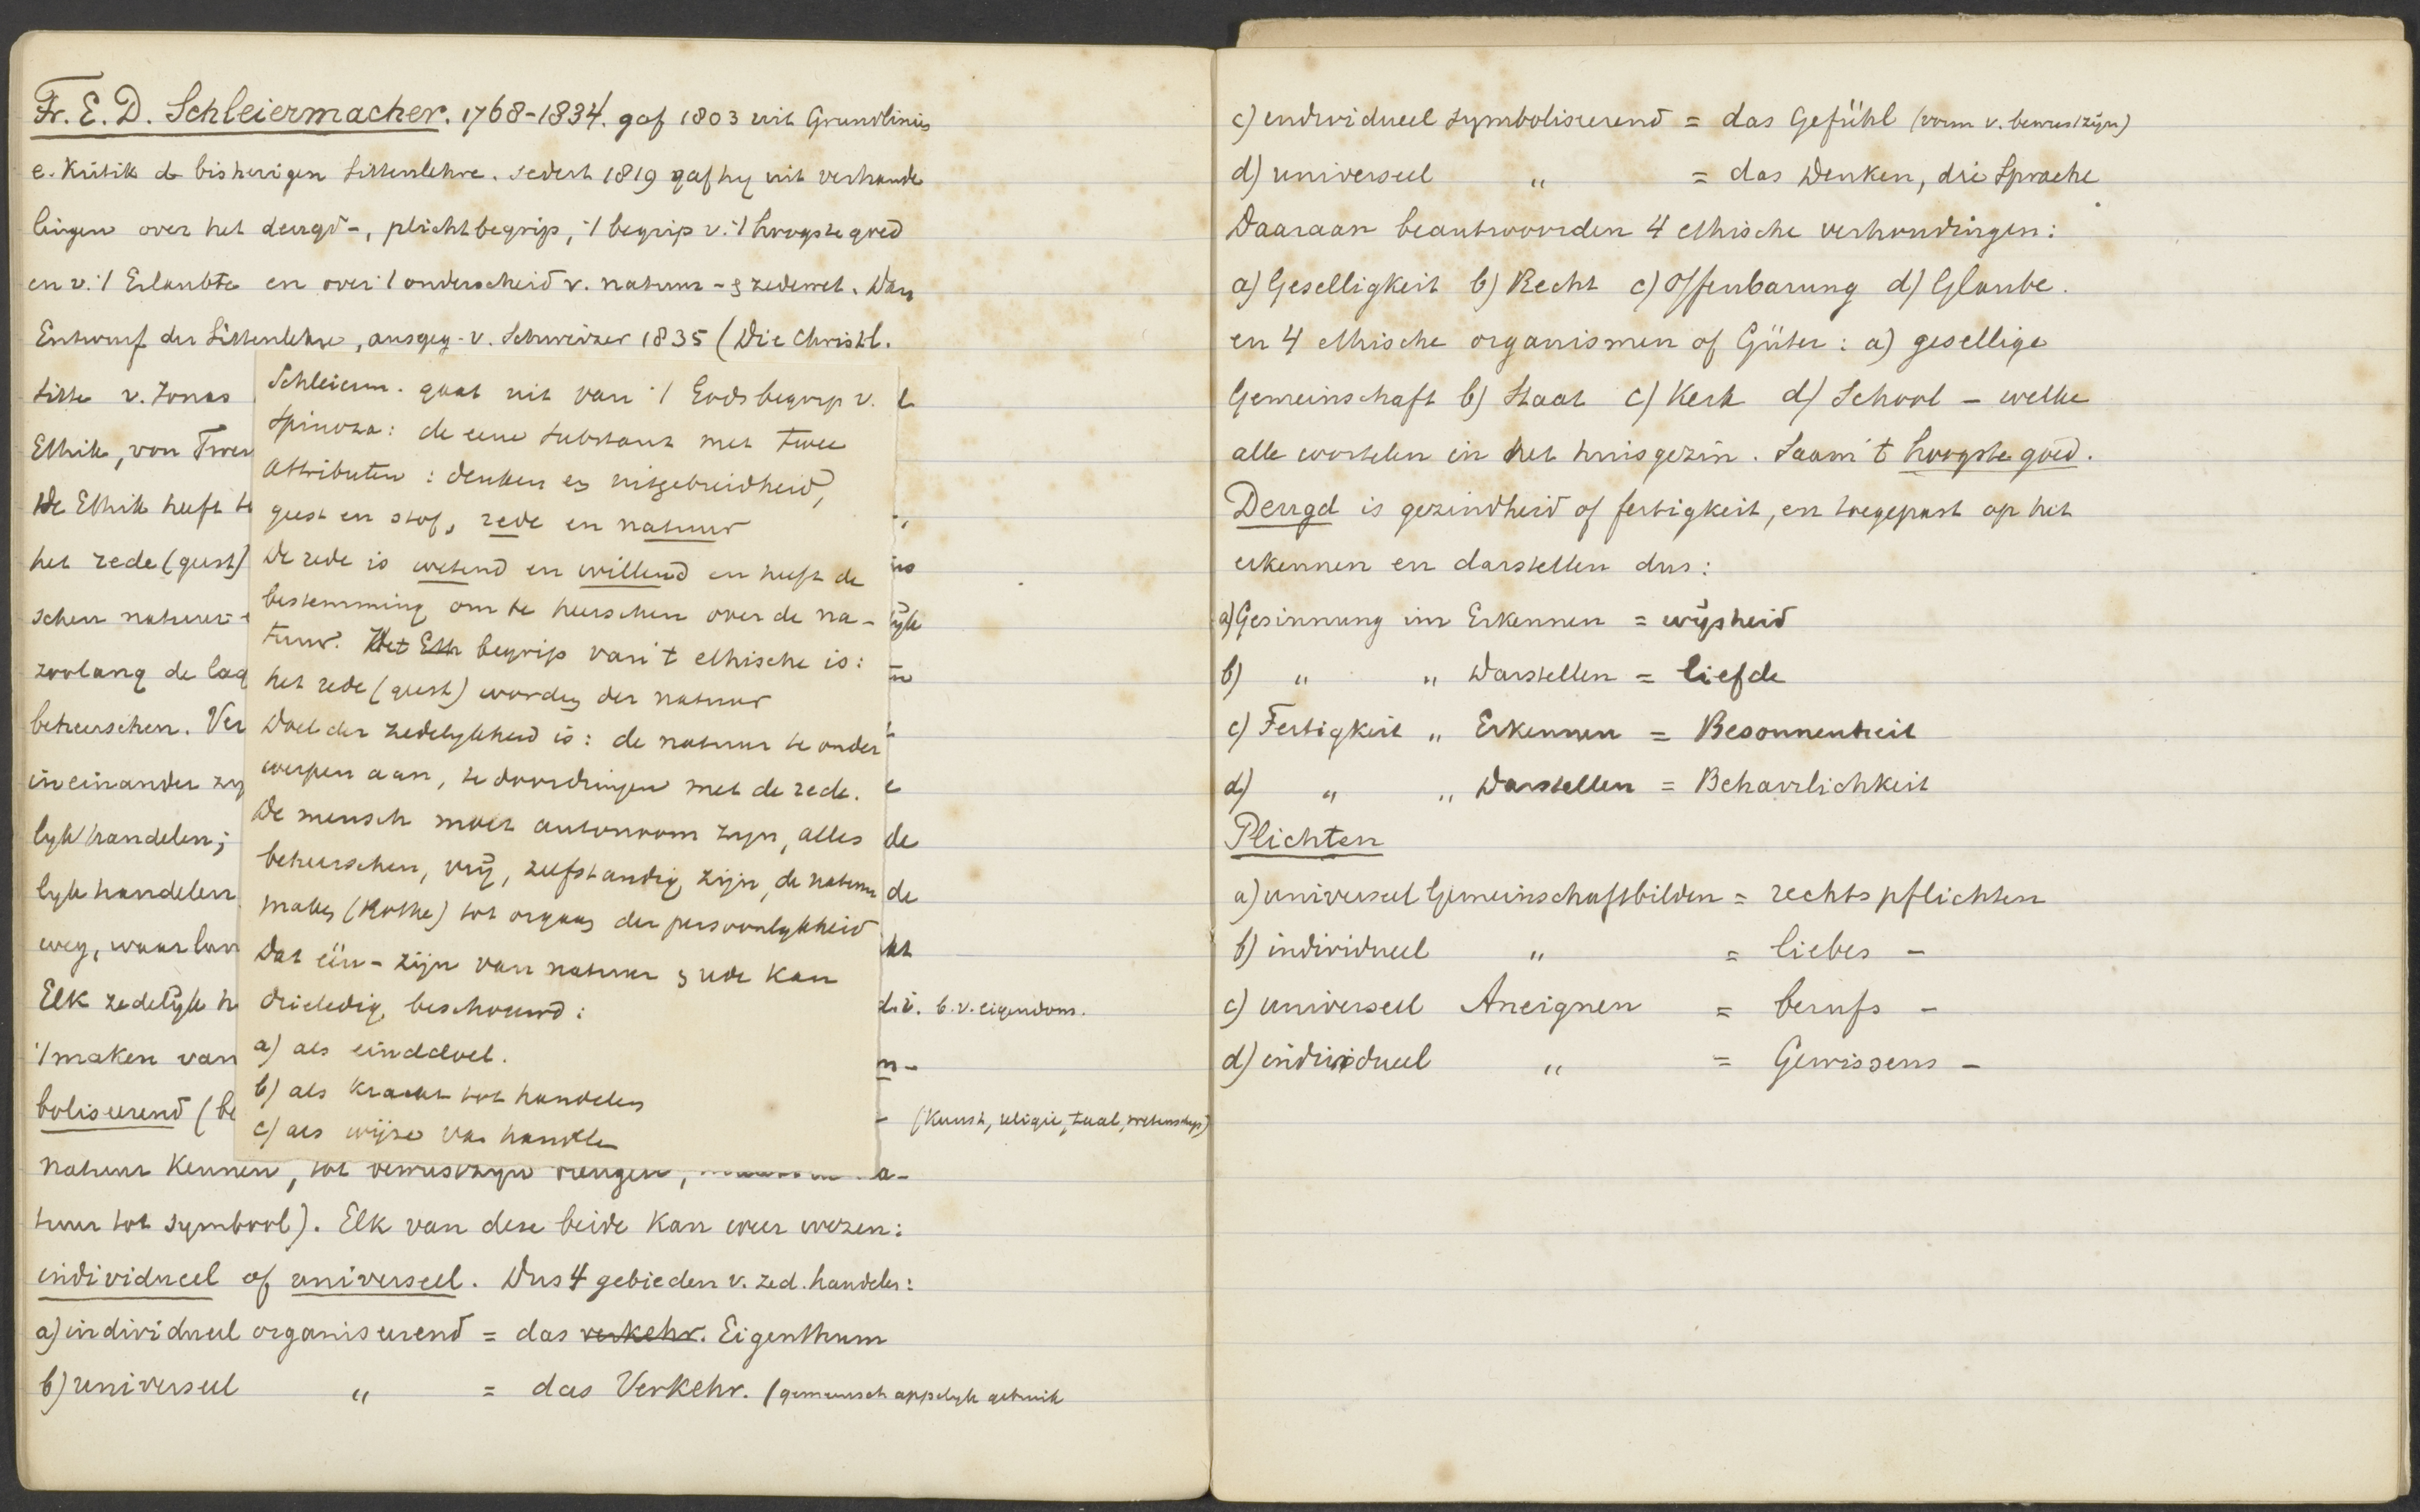 Fr. E. D. Schleiermacher. 1768-1834. gaf 1803 uit Grundlinien
e. Kritik d. bisherigen Sittenlehre. Sedert 1819 gaf hy uit verhande
lingen over het deugd-, plichtbegrip, 't begrip v. 't hoogste goed
en v. 't Erlaubte en over 't onderscheid v. natuur- & zedewet. Dan
Entwurf der Sittenlehre, ausgeg. v. Schweizer 1835 (Die Christl.
Sitte v. Jonas
Ethik, von Twes
De Ethik heeft te
het rede (geest)
schen natuur-
zoolang de laa
beheerschen. Ver
in einander zy
lyk handelen;
lyk handelen
weg, waar lan
Elk zedelijk h
't maken van
boliseerend (be
Schleierm. gaat uit van 't Godsbegrip v.
Spinoza: de eene substant met twee
attributen: denken en uitgebreidheid,
geest en stof, rede en natuur
De rede is wetend en willend en heeft de
bestemming om te heerschen over de na-
tuur. Het Eth begrip van 't ethische is:
het rede (geest) worden der natuur
Doel der zedelykheid is: de natuur te onder
werpen aan, te doordringen met de rede.
De mensch moet autonoom zijn, alles
beheerschen, vrij, zelfstandig zijn, de natuur
maken (Rothe) tot orgaan der persoonlykheid
Dat één-zijn van natuur & rede kan
drieledig beschouwd:
a) als einddoel.
b) als kracht tot handelen
c) als wijze van handelen
is
ijk
e
de
de
kt
d.i. b.v. eigendom.
n-
- (Kunst, religie, taal, wetenschap)
natuur kennen, tot bewustzyn brengen, a-
tuur tot symbool). Elk van deze beide kan weer wezen:
individueel of universeel. Dus 4 gebieden v. zed. handelen:
a) individueel organiseerend = das verkehr. Eigenthum
b) universeel " = das Verkehr. (gemeenschappelyk gebruik
c) individueel symboliseerend = das Gefühl (vorm v. bewustzijn)
d) universeel " = das Denken, die Sprache
Daaraan beantwoorden 4 ethische verhoudingen:
a) Geselligkeit b) Recht c) Offenbarung d) Glaube.
en 4 ethische organismen of Güter: a) gesellige
Gemeinschaft b) Staat c) Kerk d) School - welke
alle wortelen in het huisgezin. Saam 't hoogste goed.
Deugd is gezindheid of fertigkeit, en toegepast op het
erkennen en darstellen dus:
a) Gesinnung im Erkennen = wijsheid
b) " " Darstellen = liefde
c) Fertigkeit " Erkennen = Besonnenheit
d) " " Darstellen = Beharrlichkeit
Plichten
a) universeel Gemeinschaftbilden = rechtspflichten
b) individueel " = liebes -
c) universeel Aneignen = berufs -
d) individueel " = Gewissens -